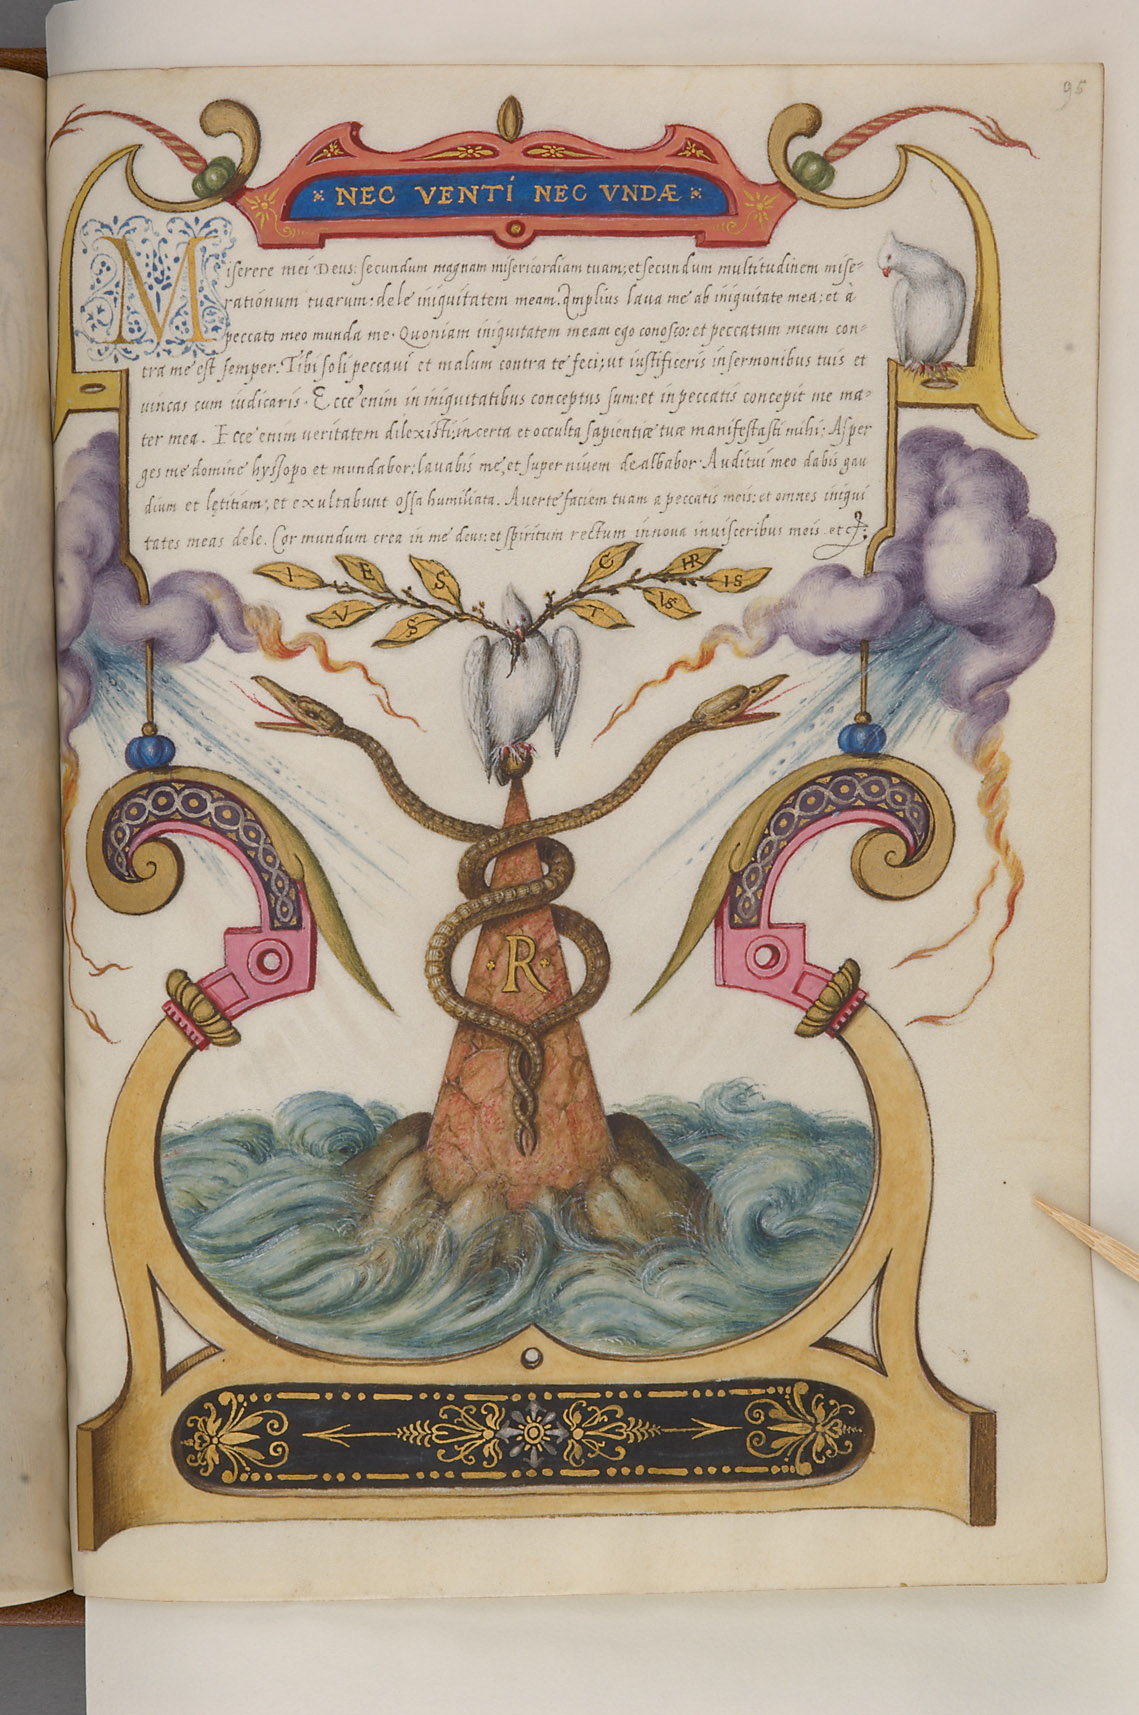 95
NEC VENTI NEC VNDÆ
Miserere mei Deus: secundum magnam misericordiam tuam; et secundum multitudinem mise-
rationum tuarum: dele iniquitatem meam. Amplius laua me ab iniquitate mea: et à
peccato meo munda me. Quoniam iniquitatem meam ego conosco: et peccatum meum con-
tra me est semper. Tibi soli peccaui et malum contra te feci; ut iustificeris in sermonibus tuis et
uincas cum iudicaris. Ecce enim in iniquitatibus conceptus sum: et in peccatis concepit me ma-
ter mea. Ecce enim ueritatem dilexisti; incerta et occulta sapientiæ tuæ manifestasti mihi: Asper
ges me domine hyssopo et mundabor; lauabis me, et super niuem dealbabor. Auditui meo dabis gau
dium et lętitiam; et exultabunt ossa humiliata. Auerte faciem tuam a peccatis meis: et omnes iniqui
tates meas dele. Cor mundum crea in me deus: et spiritum rectum innoua in uisceribus meis. etc;
I V E S S C T HR VS IS
· R ·